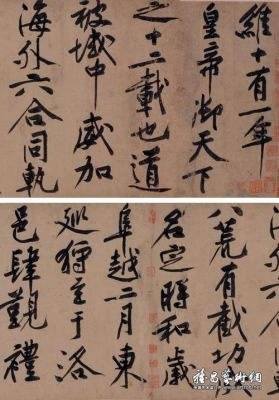 維十有一年
皇帝御天下
之十二載也道
被域中威加
海外六合同軌
海外六合
八荒有截功成
名定時和歲
阜越二月東
巡狩至于洛
邑肆覲禮
雅昌藝術網